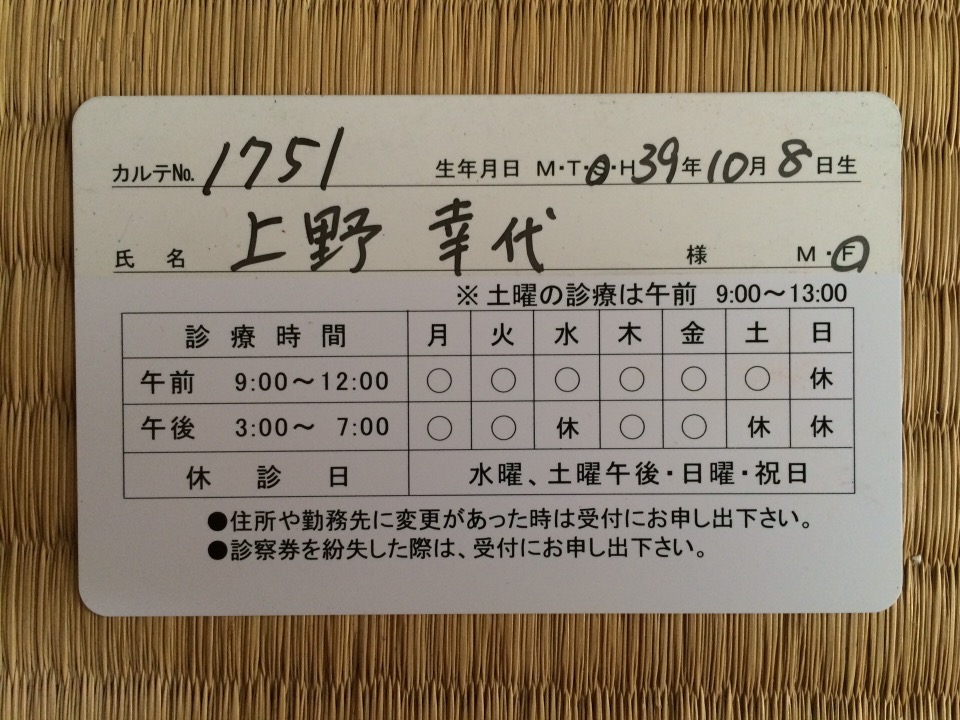 カルテNo. 1751 生年月日 M・T・S・H 39年10月8日生
氏名 上野 幸代 様 M・F
※ 土曜の診療は午前 9:00～13:00
診療時間 月 火 水 木 金 土 日
午前 9:00～12:00 ○ ○ ○ ○ ○ ○ 休
午後 3:00～ 7:00 ○ ○ 休 ○ ○ 休 休
休診日 水曜、土曜午後・日曜・祝日
●住所や勤務先に変更があった時は受付にお申し出下さい。
●診察券を紛失した際は、受付にお申し出下さい。